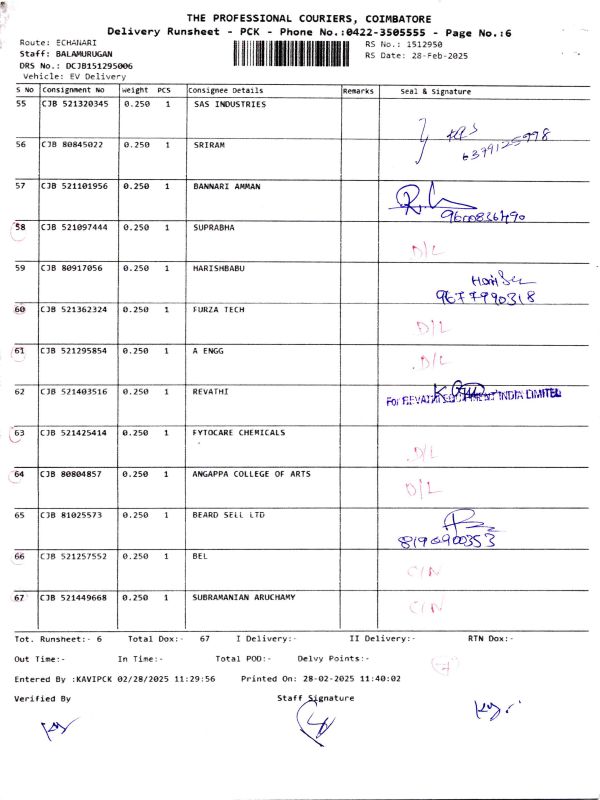 THE PROFESSIONAL COURIERS, COIMBATORE
Delivery Runsheet - PCK - Phone No.:0422-3505555 - Page No.:6
Route: ECHANARI RS No.: 1512950
Staff: BALAMURUGAN RS Date: 28-Feb-2025
DRS No.: DCJB151295006
Vehicle: EV Delivery
S No Consignment No weight PCS Consignee Details Remarks Seal & Signature
55 CJB 521320345 0.250 1 SAS INDUSTRIES
6379125998
56 CJB 80845022 0.250 1 SRIRAM
57 CJB 521101956 0.250 1 BANNARI AMMAN
9600836490
58 CJB 521097444 0.250 1 SUPRABHA D/L
59 CJB 80917056 0.250 1 HARISHBABU
9677990318
60 CJB 521362324 0.250 1 FURZA TECH D/L
61 CJB 521295854 0.250 1 A ENGG D/L
62 CJB 521403516 0.250 1 REVATHI
For REVATHI EQUIPMENT INDIA LIMITED
63 CJB 521425414 0.250 1 FYTOCARE CHEMICALS D/L
64 CJB 80804857 0.250 1 ANGAPPA COLLEGE OF ARTS D/L
65 CJB 81025573 0.250 1 BEARD SELL LTD
8190900353
66 CJB 521257552 0.250 1 BEL C/N
67 CJB 521449668 0.250 1 SUBRAMANIAN ARUCHAMY C/N
Tot. Runsheet:- 6 Total Dox:- 67 I Delivery:- II Delivery:- RTN Dox:-
Out Time:- In Time:- Total POD:- Delvy Points:-
Entered By :KAVIPCK 02/28/2025 11:29:56 Printed On: 28-02-2025 11:40:02
Verified By Staff Signature